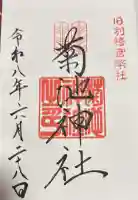 旧別格官幣社
菊池神社
令和八年六月二十八日